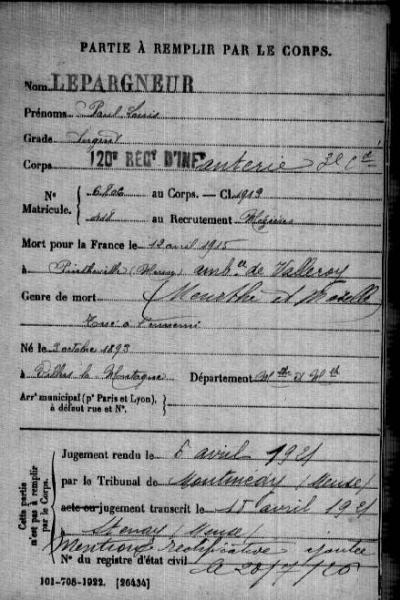 PARTIE À REMPLIR PAR LE CORPS.
Nom LEPARGNEUR
Prénoms Paul Louis
Grade Sergent
Corps 120e RÉGt D'INFanterie 3e Cie
No Matricule. 6806 au Corps. — Cl. 1913
418 au Recrutement Mézières
Mort pour la France le 12 avril 1915
à (Meuse) ambce de Valleroy
Genre de mort (Meurthe et Moselle)
Tué à l'ennemi
Né le 3 octobre 1893
à Villers la Montagne Département Mthe et Mlle
Arrt municipal (pr Paris et Lyon),
à défaut rue et No.
Cette partie n'est pas à remplir par le Corps.
Jugement rendu le 6 avril 1921
par le Tribunal de Montmédy (Meuse)
acte ou jugement transcrit le 15 avril 1921
à Stenay (Meuse)
Mention rectificative ajoutée
No du registre d'état civil
101-708-1922. [26434]